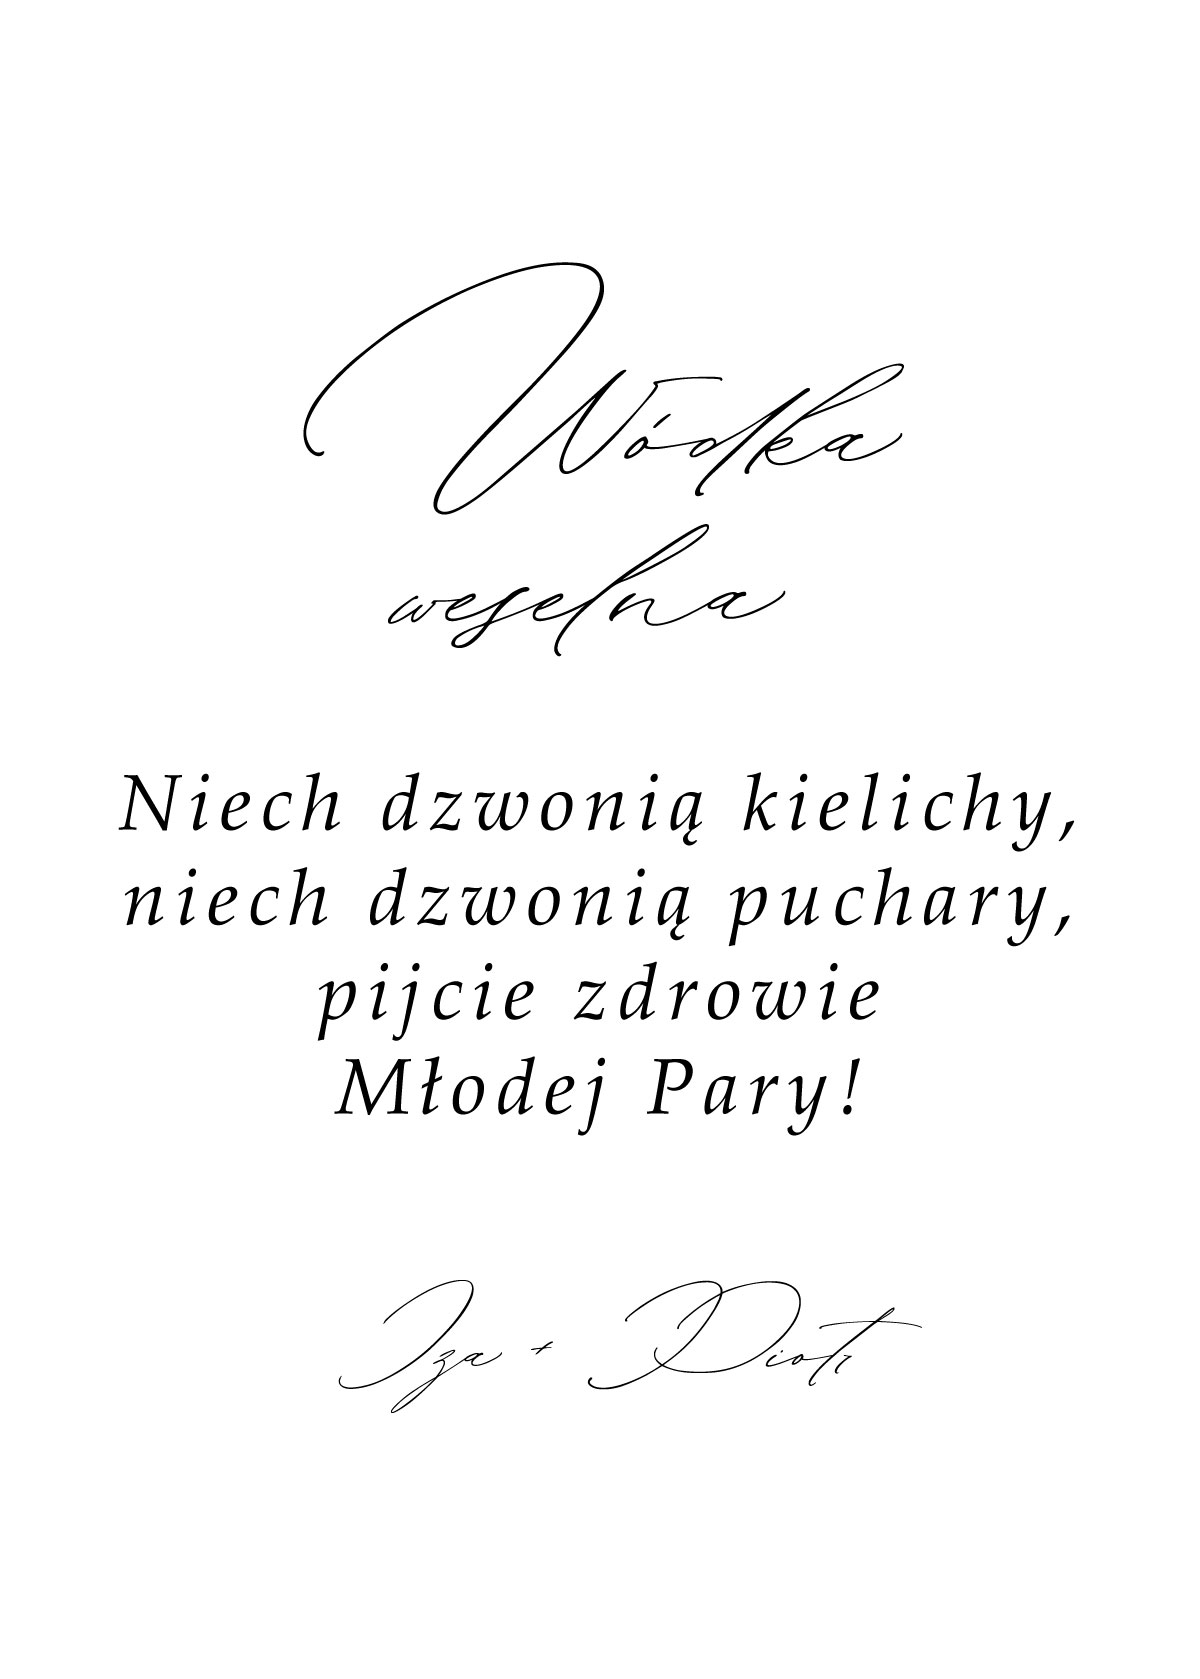 Wódka
weselna
Niech dzwonią kielichy,
niech dzwonią puchary,
pijcie zdrowie
Młodej Pary!
Iza + Piotr